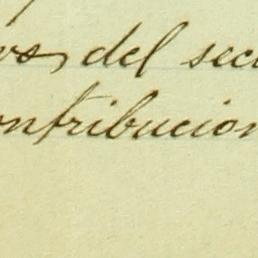 vos del sec
ontribucion